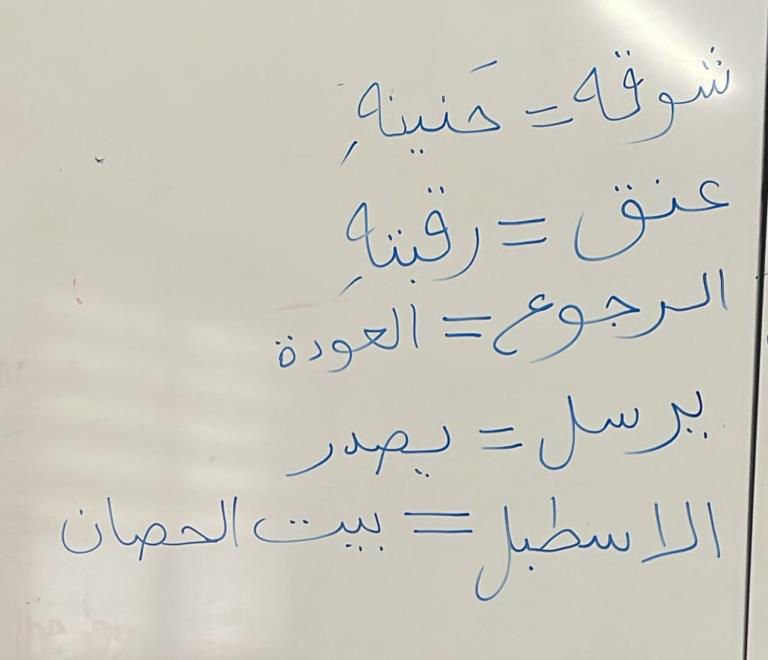 شوقه = حَنينهِ
عنق = رقبتهِ
الرجوع = العودة
يرسل = يصدر
الاسطبل = بيت الحصان